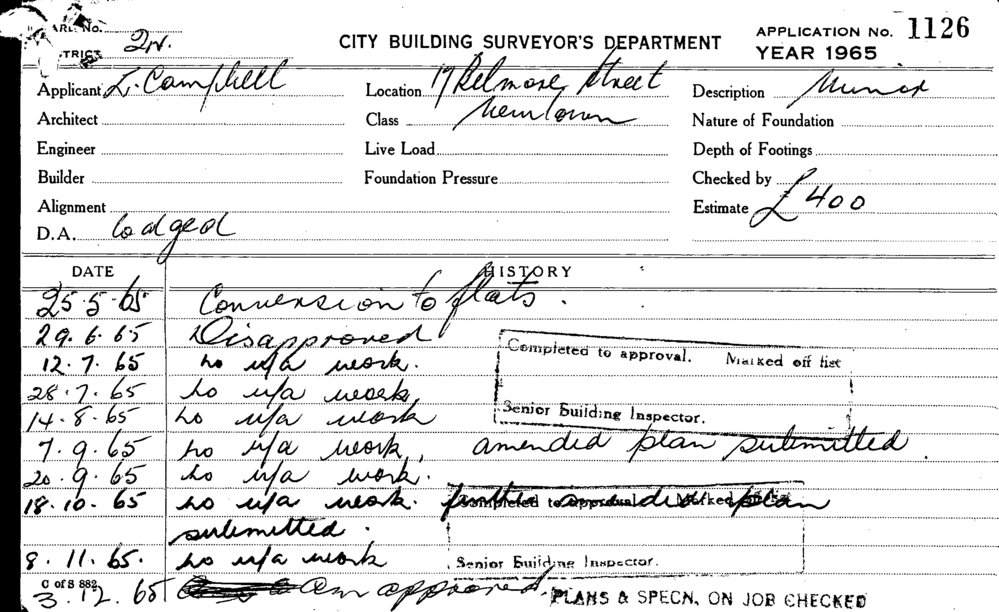 CARD No.
DISTRICT 2N.
CITY BUILDING SURVEYOR'S DEPARTMENT
APPLICATION No. 1126
YEAR 1965
Applicant L. Campbell
Location 17 Belmore Street
Description Minor
Architect
Class Newtown
Nature of Foundation
Engineer
Live Load
Depth of Footings
Builder
Foundation Pressure
Checked by
Alignment
Estimate £400
D.A. lodged
DATE HISTORY
25·5·65 Conversion to flats.
29.6.65 Disapproved
Completed to approval. Marked off list
12.7.65 no u/a work.
28.7.65 no u/a work.
Senior Building Inspector.
14.8.65 no u/a work
7.9.65 no u/a work, amended plan submitted.
20.9.65 no u/a work.
18.10.65 no u/a work. further amended plan
Completed to approval. Marked off list
submitted.
8.11.65. no u/a work
Senior Building Inspector.
C of S 882
3.12.65 Am approved.
PLANS & SPECN. ON JOB CHECKED